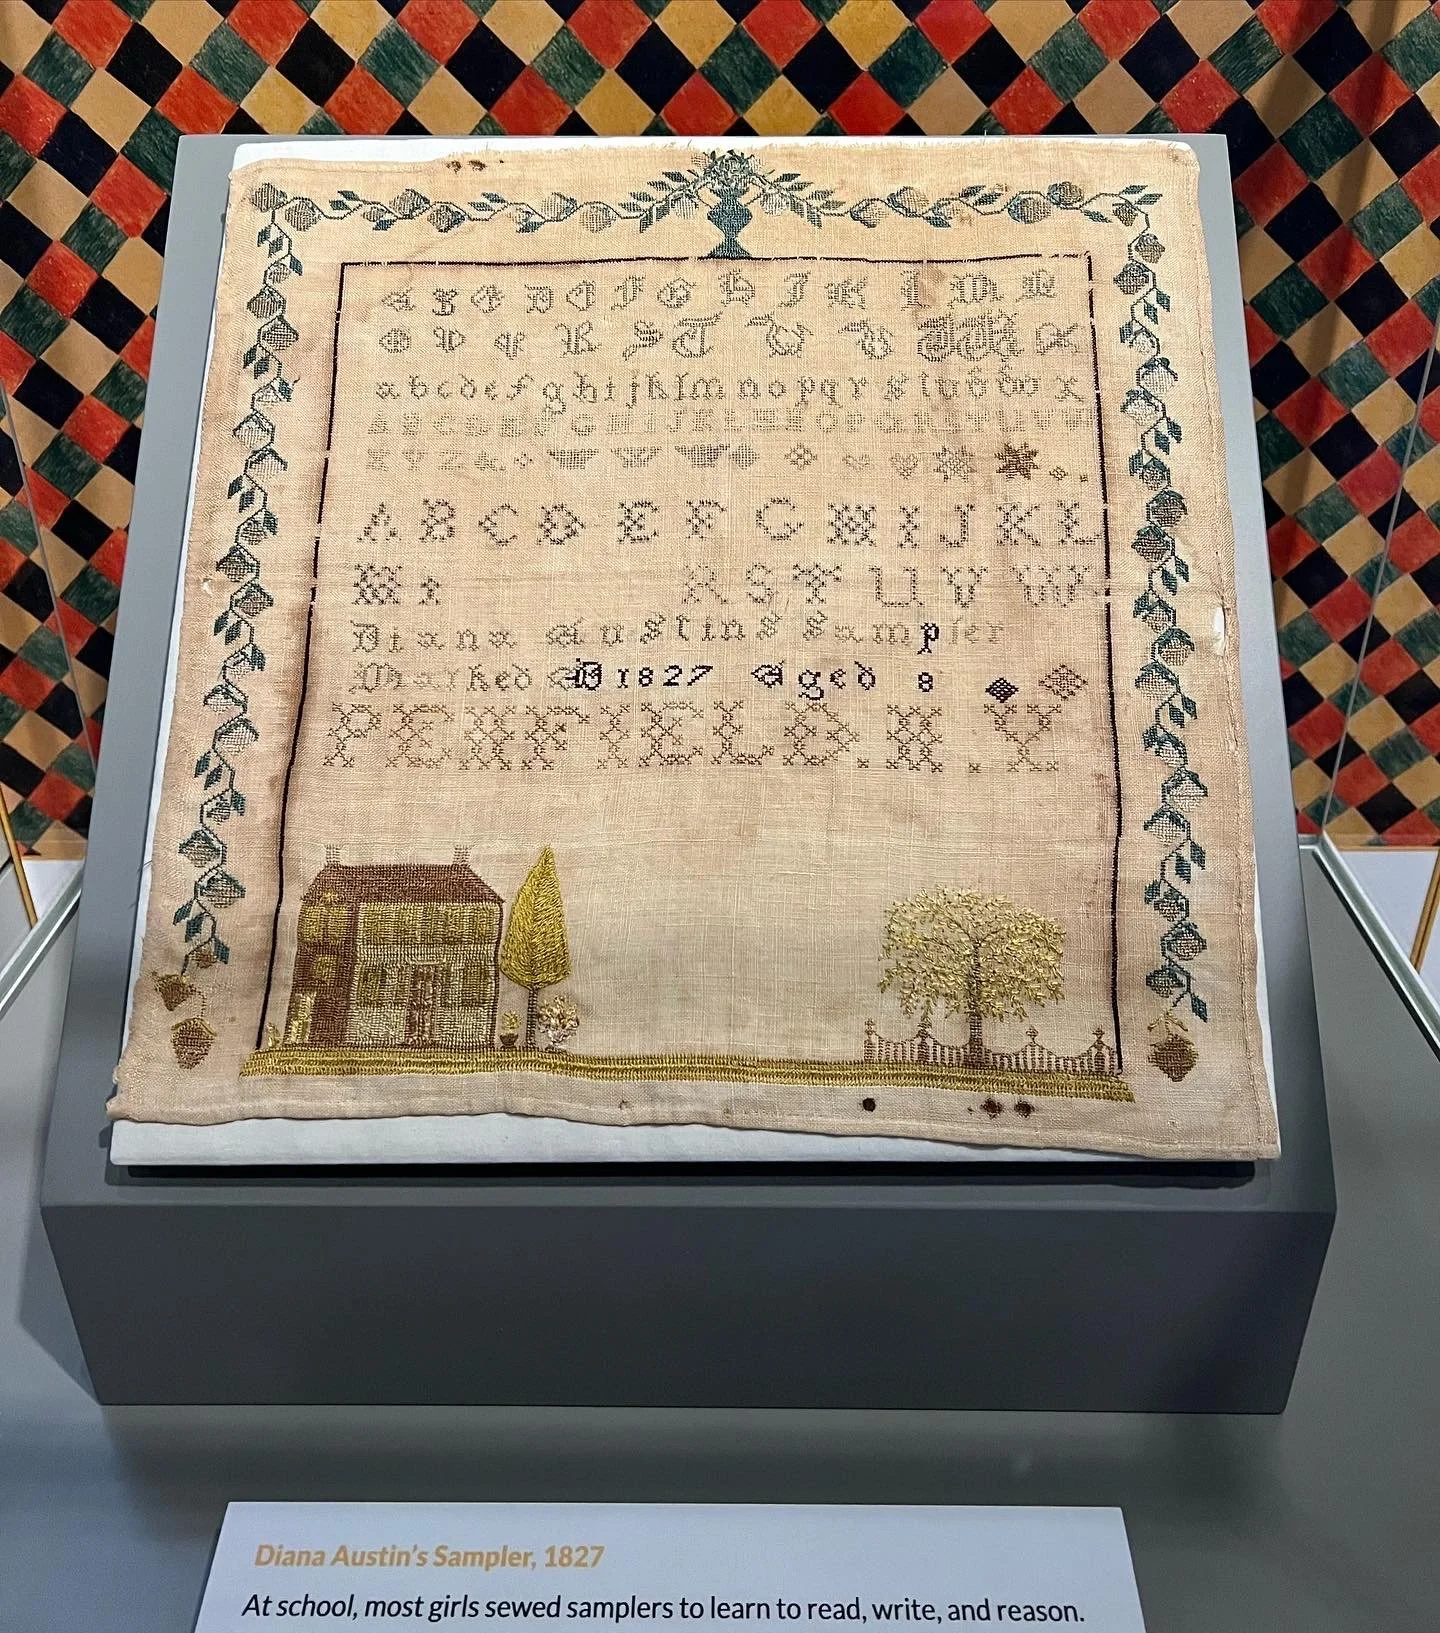 A B C D E F G H I K L M N
O P Q R S T U V W X
a b c d e f g h i j k l m n o p q r s t u v w x
A B C D E F G H I J K L M N O P Q R S T U V W
A B C D E F G H I J K L
M R S T U V W
Diana Austins Sampler
Marked AD 1827 Aged 8
PENFIELD. N. Y
Diana Austin's Sampler, 1827
At school, most girls sewed samplers to learn to read, write, and reason.